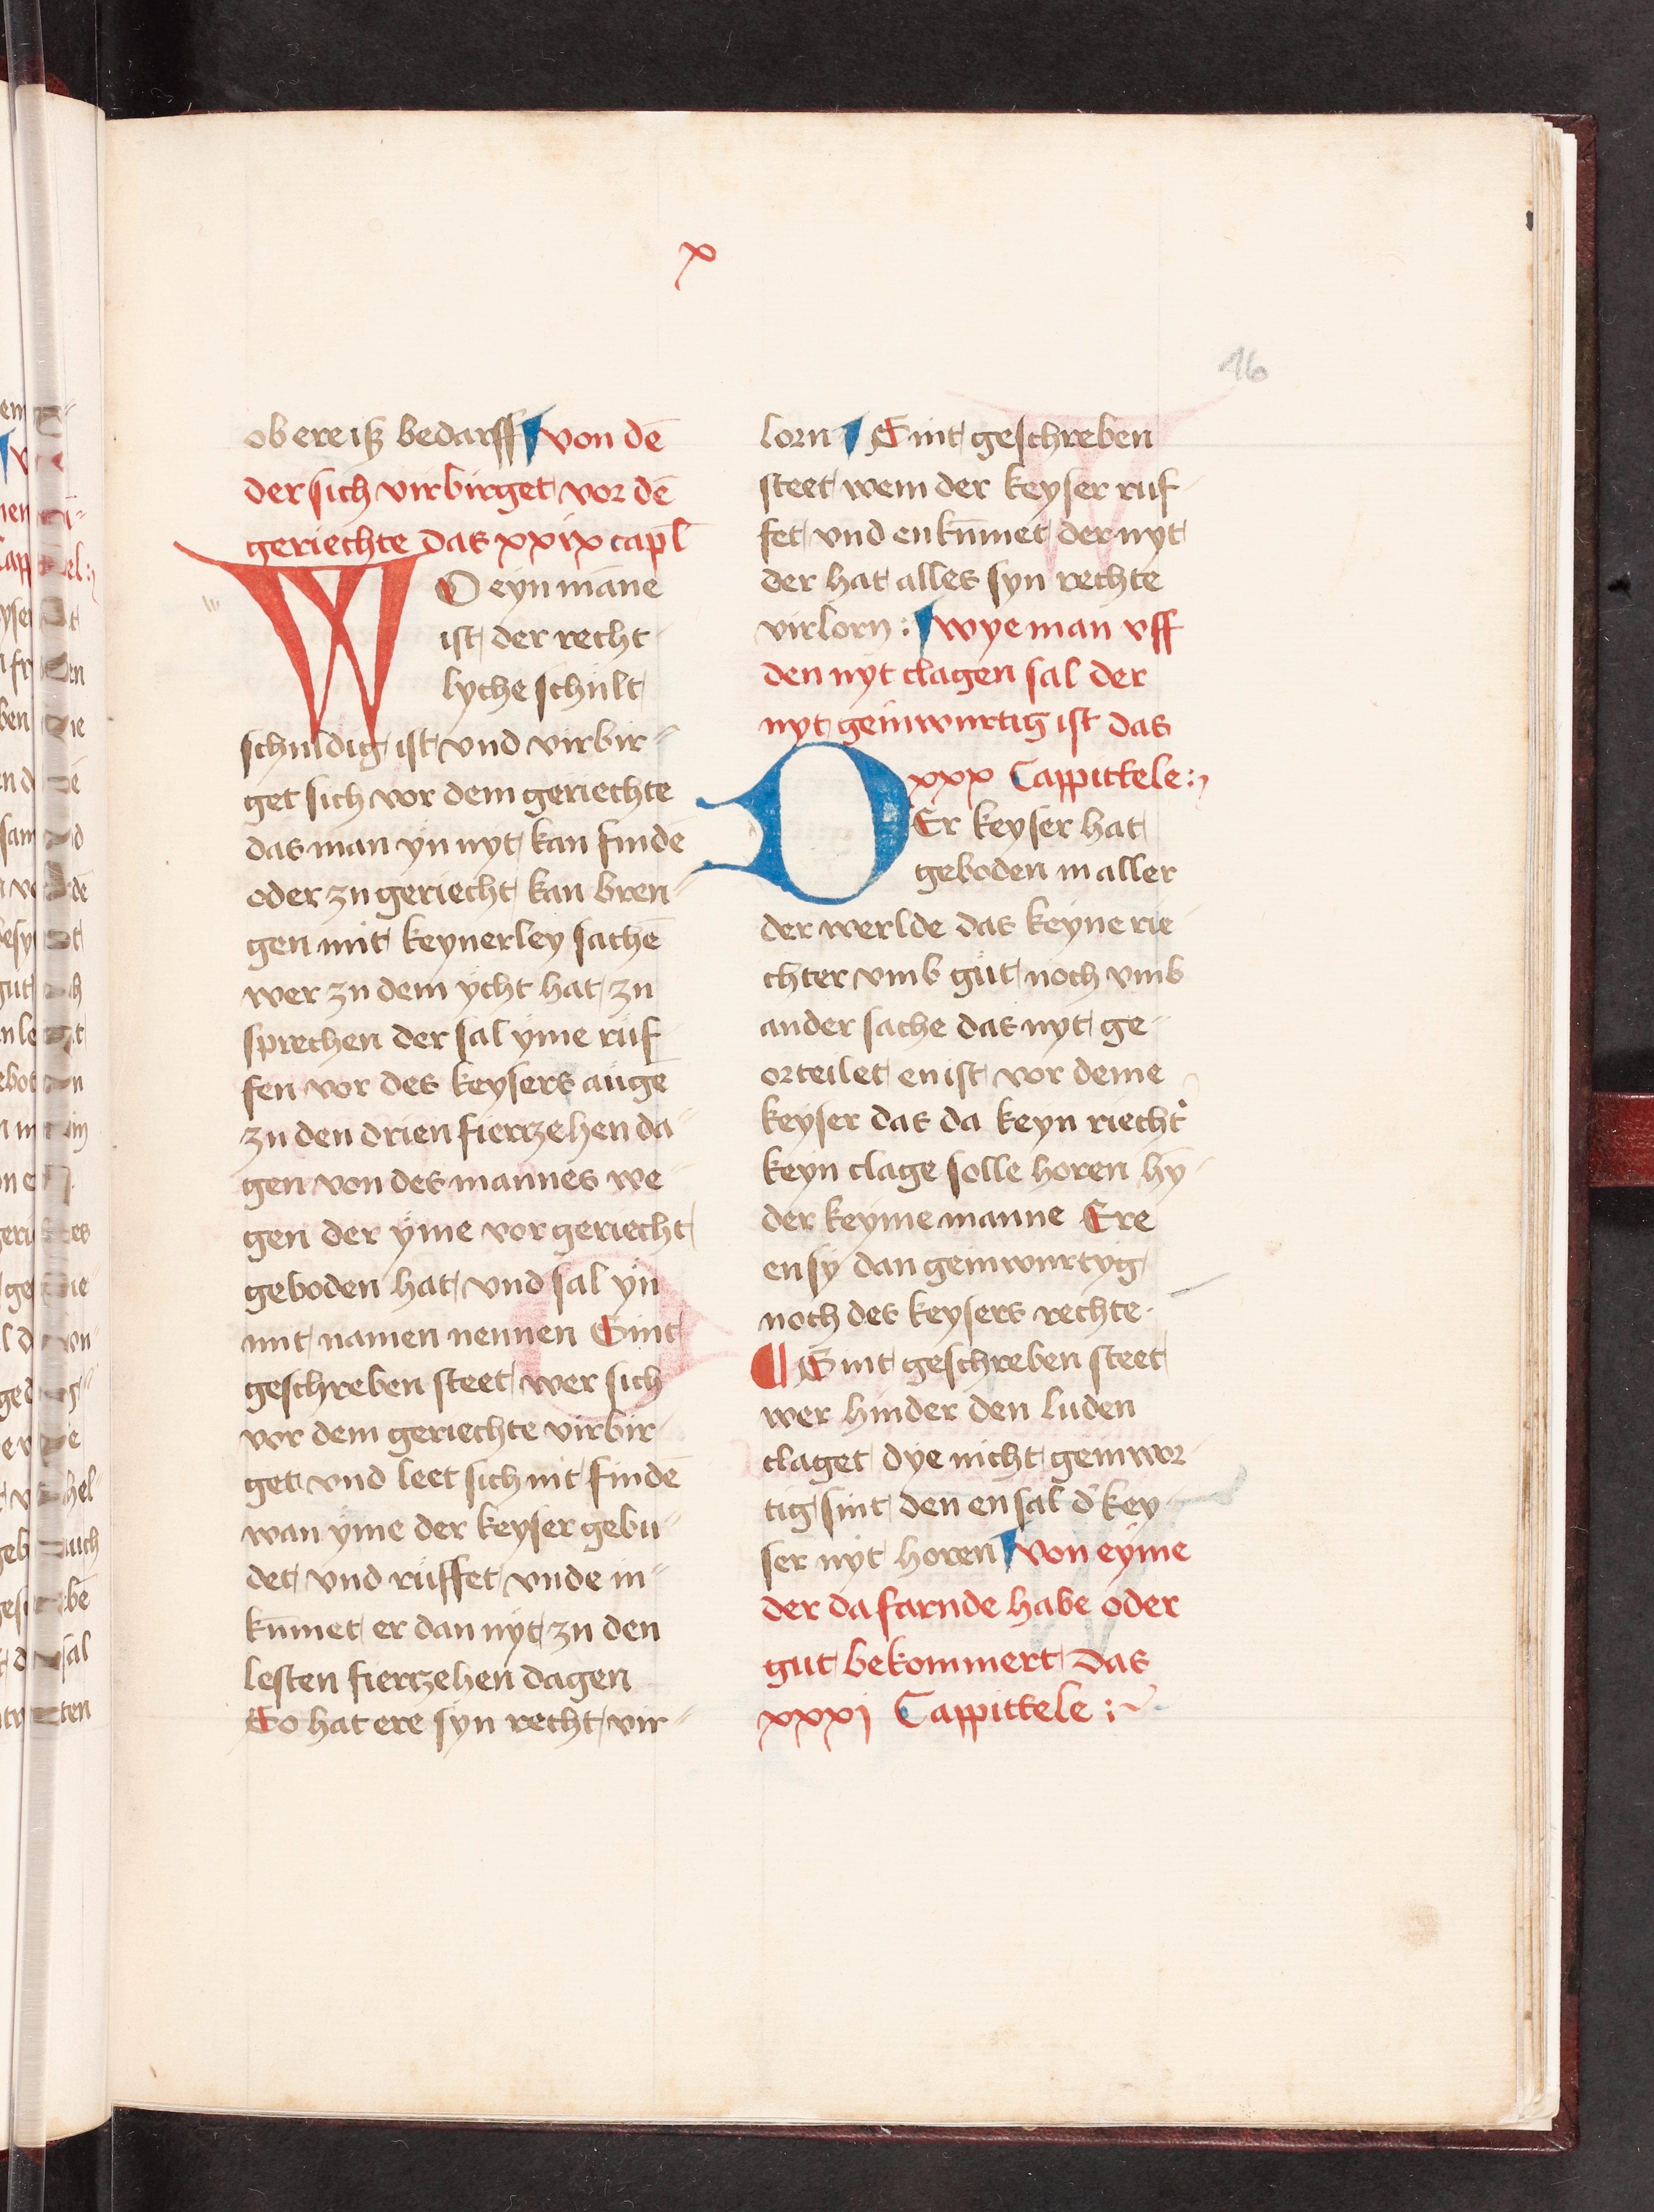 x
16
ob ere iß bedarff von dē
der sich virbirget vor dē
geriechte das xxix capl̄
WO eyn māne
ist der recht
lyche schult
schuldig ist vnd virbir⸗
get sich vor dem geriechte
das man yn nyt kan findē
oder zu geriecht kan bren⸗
gen mit keynerley sachē
wer zu dem ycht hat zu
sprechen der sal yme rüf
fen vor des keysers auge
zu den drien fierzehen da⸗
gen von des mannes we⸗
gen der yme vor geriecht
geboden hat vnd sal yn
mit namen nennen Sint
geschreben steet wer sich
vor dem geriechte virbir⸗
get vnd leet sich nit findē
wan yme der keyser gebu⸗
det vnd rüffet vnde in⸗
kūmet er dan nyt zu den
lesten fierzehen dagen
So hat ere syn recht vir⸗
lorn Sint geschreben
steet wem der keyser ruf⸗
fet vnd enkūmet der nyt
der hat alles syn rechte
virlorn : wye man vff
den nyt clagen sal der
nyt geinwurtig ist das
xxx Cappittele :
DEr keyser hat
geboden in aller
der werlde das keyne rie⸗
chter vmb güt noch vmb
ander sache das nyt ge⸗
orteilet en ist vor deme
keyser das da keyn riecht᾿
keyn clage solle horen hȳ⸗
der keyme manne Ere
en sy dan geinwurtyg
noch des keysers rechte.
¶ Sint geschreben steet
wer hinder den luden
claget dye nicht geinwor⸗
tig sint den en sal d᾿ key⸗
ser nyt horen von eyme
der da farnde habe oder
gut bekommert das
xxxj Cappittele :